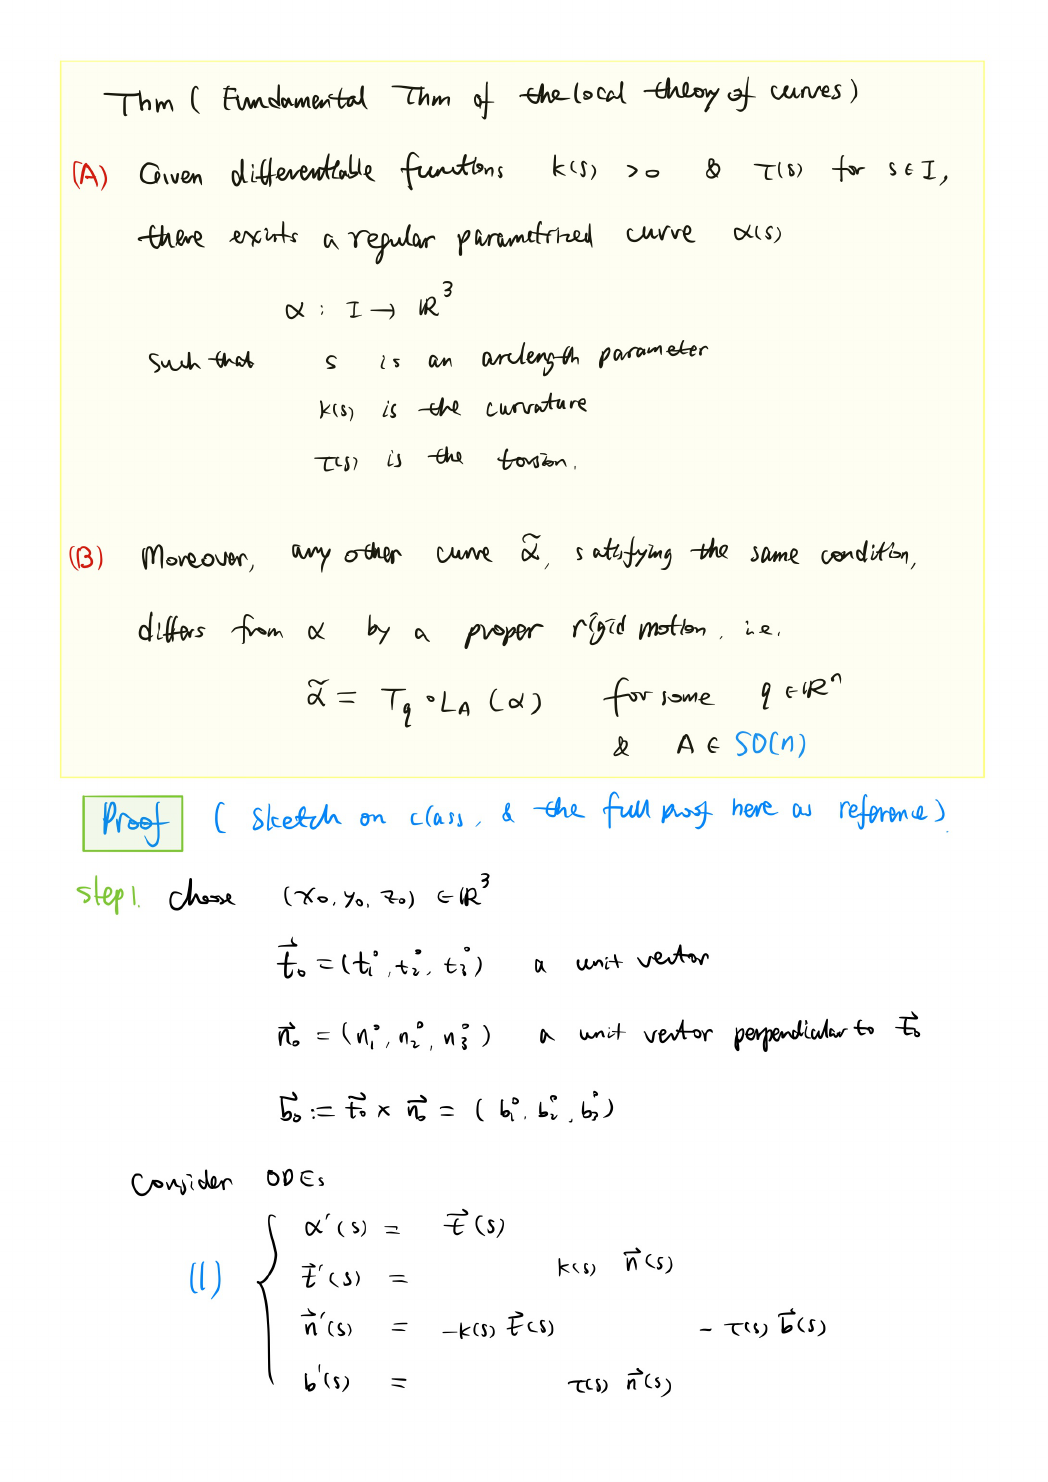 Thm ( Fundamental Thm of the local theory of curves )
(A) Given differentiable functions k(s) >0 & τ(s) for s∈I,
there exists a regular parametrized curve α(s)
α : I → ℝ³
such that s is an arclength parameter
k(s) is the curvature
τ(s) is the torsion.
(B) Moreover, any other curve α̃, satisfying the same condition,
differs from α by a proper rigid motion, i.e.
α̃ = T_q ∘ L_A (α) for some q ∈ ℝⁿ
& A ∈ SO(n)
Proof ( sketch on class, & the full proof here as reference)
step 1. choose (x₀, y₀, z₀) ∈ ℝ³
t⃗₀ = (t₁°, t₂°, t₃°) a unit vector
n⃗₀ = (n₁°, n₂°, n₃°) a unit vector perpendicular to t⃗₀
b⃗₀ := t⃗₀ × n⃗₀ = ( b₁°, b₂°, b₃°)
Consider ODEs
α'(s) = t⃗(s)
(1) t⃗'(s) = k(s) n⃗(s)
n⃗'(s) = -k(s) t⃗(s) - τ(s) b⃗(s)
b'(s) = τ(s) n⃗(s)